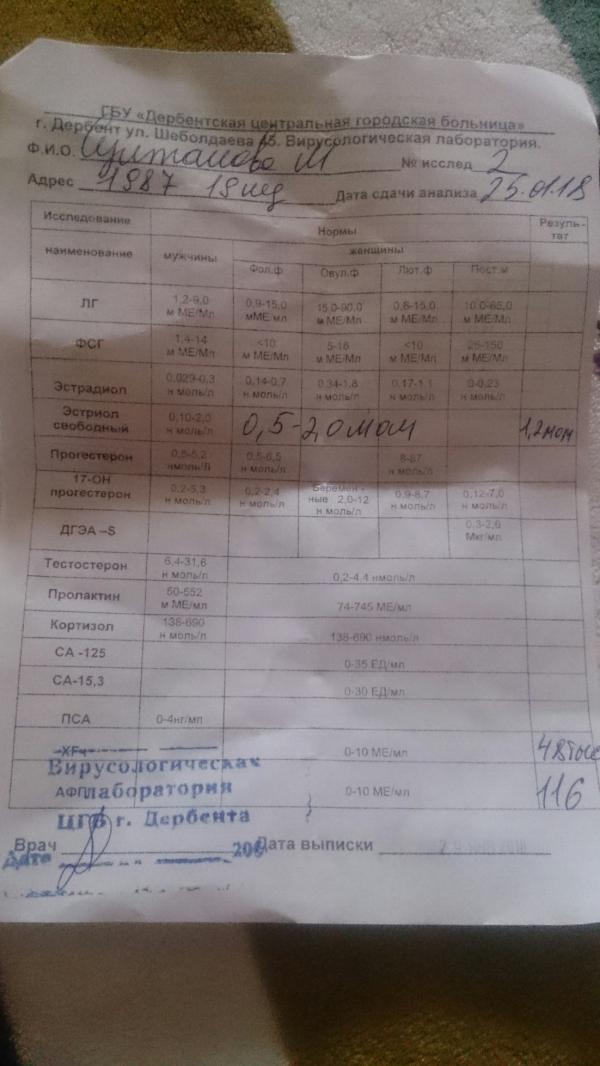 ГБУ «Дербентская центральная городская больница»
г. Дербент ул. Шеболдаева 65. Вирусологическая лаборатория.
Ф.И.О. Султанова М № исслед 2
Адрес 1987 19нед Дата сдачи анализа 25.01.18
Исследование Нормы Резуль-
тат
наименование мужчины женщины
Фол.ф Овул.ф Лют.ф Пост.м
ЛГ 1,2-9,0 0,9-15,0 15,0-90,0 0,6-15,0 10,0-65,0
м МЕ/Мл мМЕ мл м МЕ/Мл м МЕ/Мл м МЕ/Мл
ФСГ 1,4-14 <10 5-16 <10 25-150
м МЕ/Мл м МЕ/Мл м МЕ/Мл м МЕ/Мл м МЕ/Мл
Эстрадиол 0,029-0,3 0,14-0,7 0.34-1,8 0,17-1.1 0-0,23
н моль/л н моль/л н моль/л н моль/л н моль/л
Эстриол 0,10-2,0 0,5-2,0 мом 1,2мом
свободный н моль/л
Прогестерон 0,5-5,2 0,5-6,5 8-87
нмоль/л н моль/л н моль/л
17-ОН Беремен -
прогестерон 0,2-5,3 0,2-2,4 ные 2,0-12 0,9-8,7 0,12-7,0
н моль/л н моль/л н моль/л н моль/л н моль/л
ДГЭА –S 0,3-2,6
Мкг/мл
Тестостерон 6,4-31,6
н моль/л 0,2-4.4 нмоль/л
Пролактин 50-552
м МЕ/мл 74-745 МЕ/мл
Кортизол 138-690
н моль/л 138-690 нмоль/л
СА -125 0-35 ЕД/мл
СА-15,3 0-30 ЕД/мл
ПСА 0-4нг/мл
ХГ 0-10 МЕ/мл 48тыс
Вирусологическая
АФП 0-10 МЕ/мл 116
лаборатория
ЦГБ г. Дербента
Врач Дата выписки
Дата 200